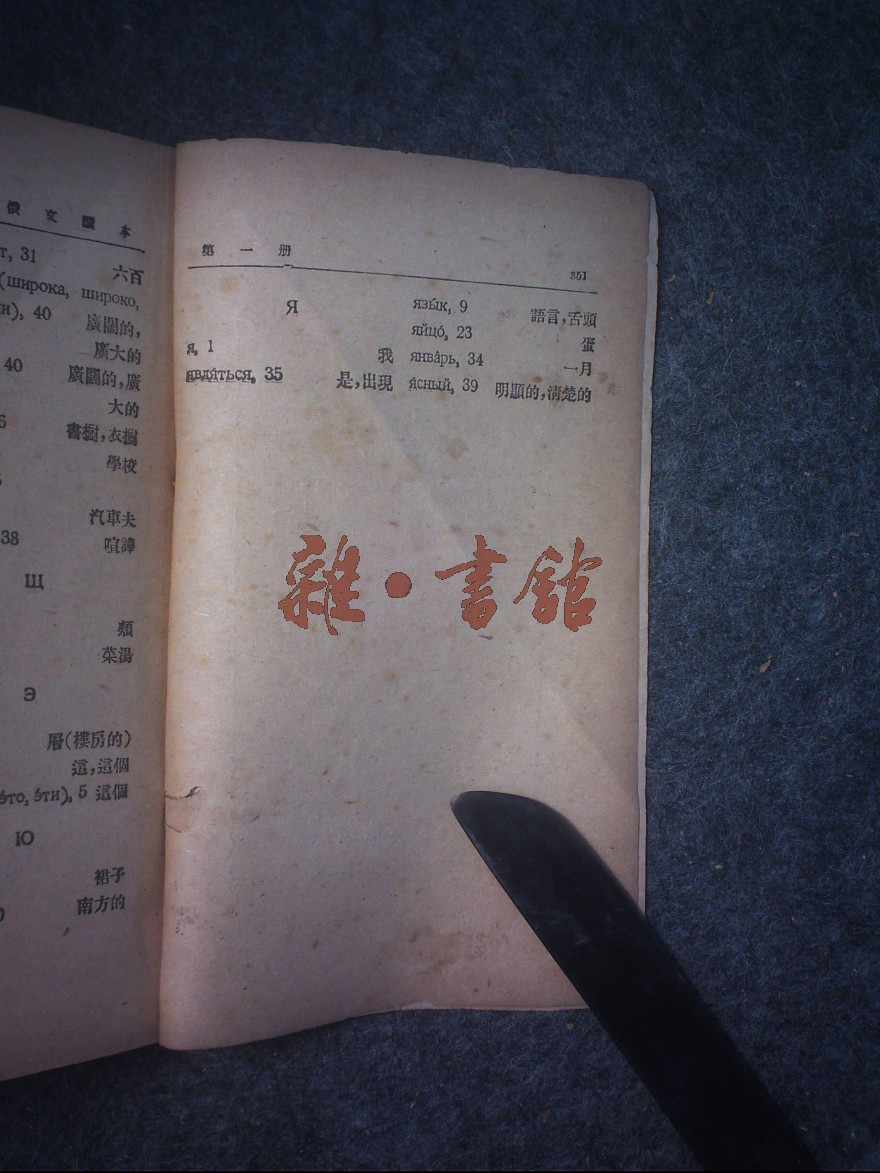 俄文讀本
т, 31 六百
(широка, широко,
и), 40 廣闊的,
廣大的
40 廣闊的,廣
大的
6 書櫥,衣櫥
學校
汽車夫
38 喧譁
Щ
頰
菜湯
Э
層(樓房的)
這,這個
э́то, э́ти), 5 這個
Ю
裙子
南方的
第一册 351
Я
я, 1 我
явля́ться, 35 是,出現
язы́к, 9 語言,舌頭
яйцо́, 23 蛋
янва́рь, 34 一月
я́сный, 39 明顯的,清楚的
雜·書館